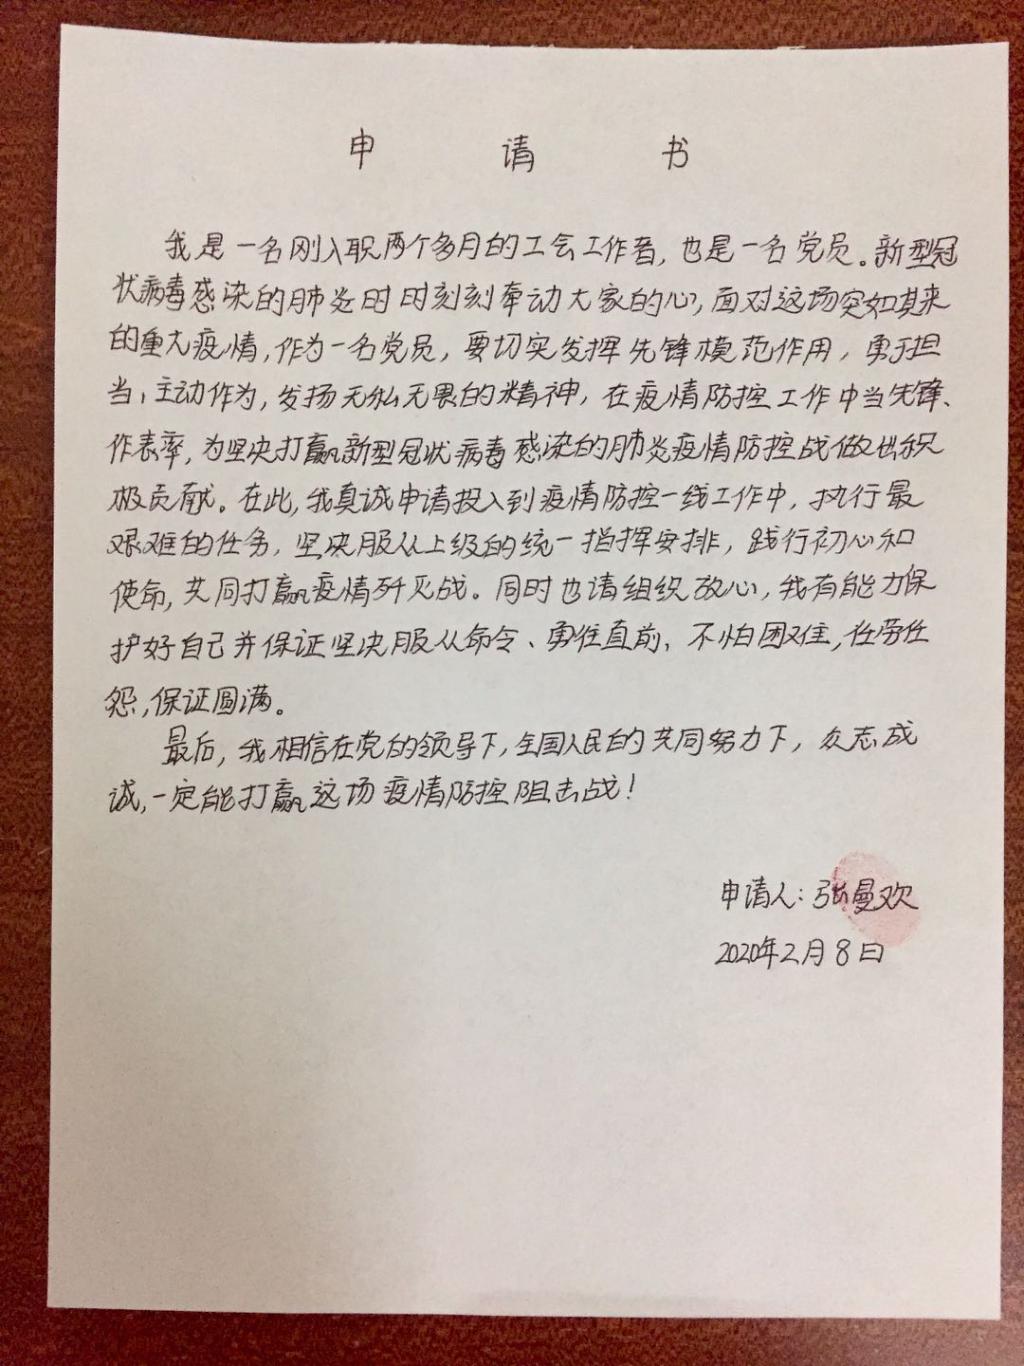 申请书
我是一名刚入职两个多月的工会工作者，也是一名党员。新型冠
状病毒感染的肺炎时时刻刻牵动大家的心，面对这场突如其来
的重大疫情，作为一名党员，要切实发挥先锋模范作用，勇于担
当，主动作为，发扬无私无畏的精神，在疫情防控工作中当先锋、
作表率，为坚决打赢新型冠状病毒感染的肺炎疫情防控战做出积
极贡献。在此，我真诚申请投入到疫情防控一线工作中，执行最
艰难的任务，坚决服从上级的统一指挥安排，践行初心和
使命，共同打赢疫情歼灭战。同时也请组织放心，我有能力保
护好自己并保证坚决服从命令、勇往直前、不怕困难，任劳任
怨，保证圆满。
最后，我相信在党的领导下，全国人民的共同努力下，众志成
诚，一定能打赢这场疫情防控阻击战！
申请人：张曼欢
2020年2月8日